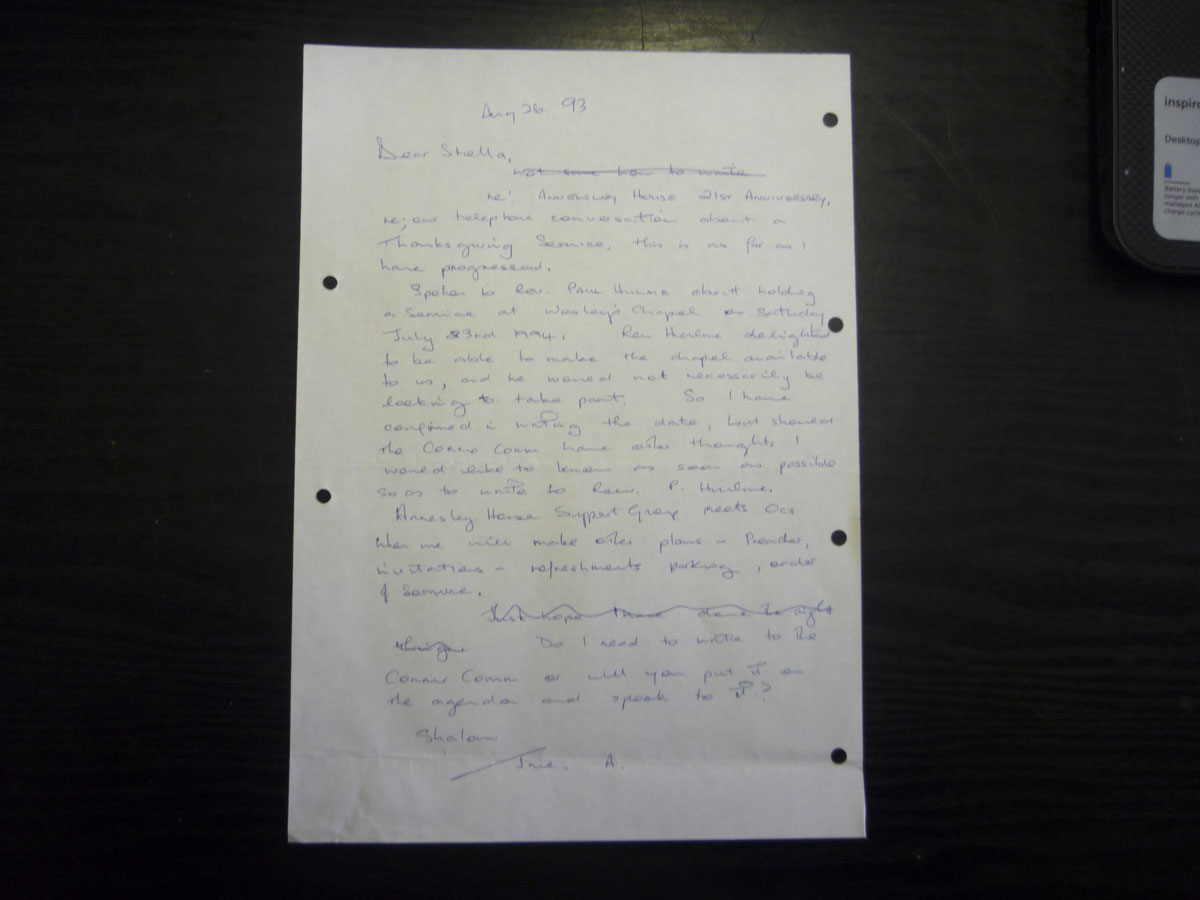 Aug 26. 93
Dear Stella,
not sure how to write
re: Annesley House 21st Anniversary.
re; our telephone conversation about a
Thanksgiving Service, this is as far as I
have progressed.
Spoken to Rev. Paul Hulme about holding
a service at Wesley's Chapel on Saturday
July 23rd 1994. Rev Hulme delighted
to be able to make the chapel available
to us, and he would not necessarily be
looking to take part. So I have
confirmed in writing the date, but should
the Connex Comm have other thoughts I
would like to know as soon as possible
so as to write to Rev. P. Hulme.
Annesley House Support Group meets Oct
when we will make other plans - Preacher,
invitations - refreshments parking, order
of Service.
Just hope I have done the right
thing Do I need to write to the
Connex Comm or will you put it on
the agenda and speak to it?
Shalom
A.
inspiro
Desktop
Battery
longer with
managed
charge cyc